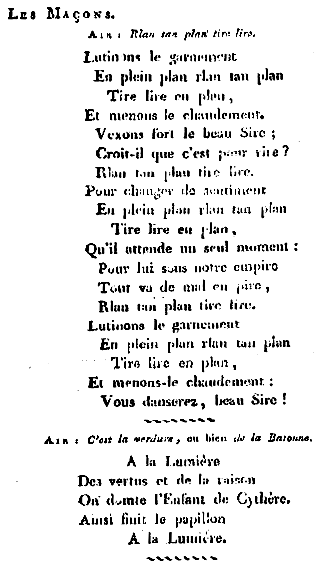 LES MAÇONS.
AIR : Rlan tan plan tire lire.
Lutinons le garnement
En plein plan rlan tan plan
Tire lire en plan,
Et menons le chaudement.
Vexons fort le beau Sire ;
Croit-il que c'est pour rire ?
Rlan tan plan tire lire.
Pour changer de sentiment
En plein plan rlan tan plan
Tire lire en plan,
Qu'il attende un seul moment :
Pour lui sous notre empire
Tout va de mal en pire,
Rlan tan plan tire lire.
Lutinons le garnement
En plein plan rlan tan plan
Tire lire en plan,
Et menons-le chaudement :
Vous danserez, beau Sire !
AIR : C'est la verdure, ou bien de la Baronne.
A la Lumière
Des vertus et de la raison
On domte l'Enfant de Cythère.
Ainsi finit le papillon
A la Lumière.